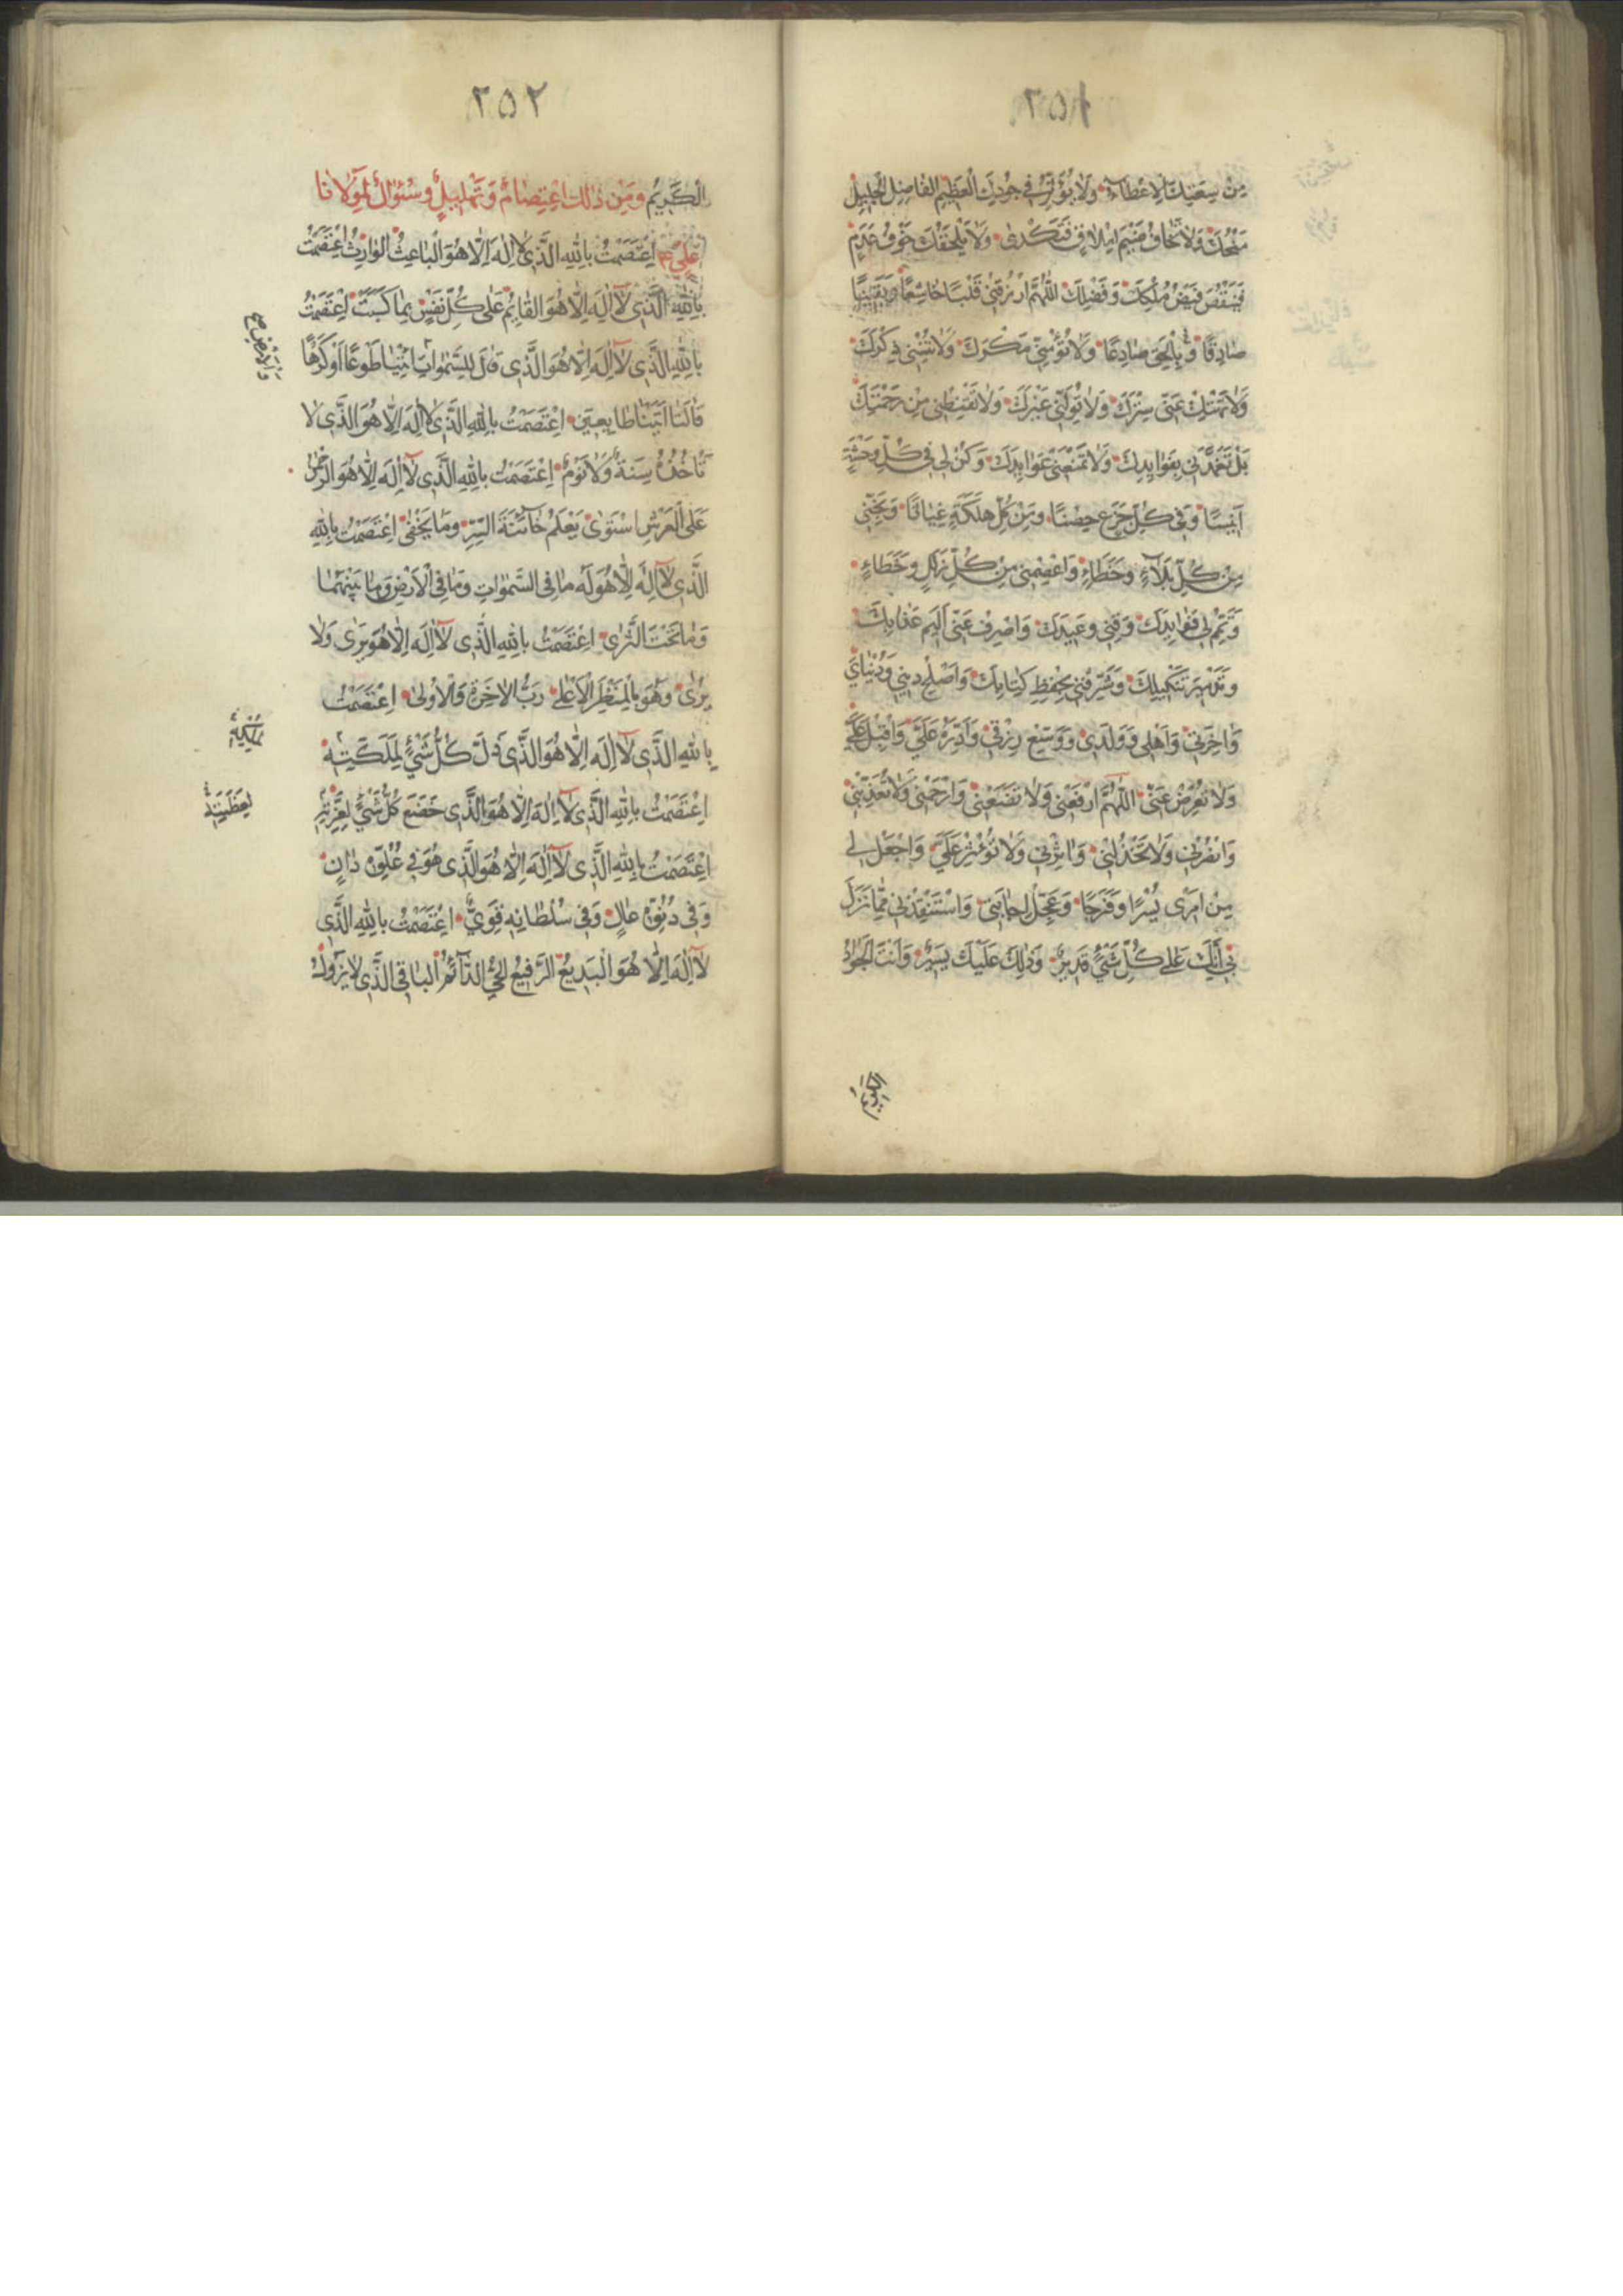 ٢٥١
مِنْ سِعَتِكَ الْاِعْطَاءُ وَلَا يُؤَثِّرُ فِي جُودِكَ الْعَظِيمِ الْفَاضِلِ الْجَلِيلِ
مِنَحُكَ وَلَا تَخَافُ ضَيْمَ اِمْلَاقٍ فَتُكْدِيَ وَلَا يَلْحَقُكَ خَوْفُ عُدْمٍ
فَيَنْقُصَ فَيْضُ مُلْكِكَ وَفَضْلِكَ اللّٰهُمَّ ارْزُقْنِي قَلْبًا خَاشِعًا وَيَقِينًا
صَادِقًا وَبِالْحَقِّ صَادِعًا وَلَا تُؤْمِنِّي مَكْرَكَ وَلَا تُنْسِنِي ذِكْرَكَ
وَلَا تَهْتِكْ عَنِّي سِتْرَكَ وَلَا تُوَلِّنِي غَيْرَكَ وَلَا تُقَنِّطْنِي مِنْ رَحْمَتِكَ
بَلْ تَغَمَّدْنِي بِفَوَايِدِكَ وَلَا تَمْنَعْنِي عَوَايِدَكَ وَكُنْ لِي فِي كُلِّ وَحْشَةٍ
آنِيسًا وَفِي كُلِّ جَزَعٍ حِصْنًا وَمِنْ كُلِّ هَلَكَةٍ غِيَاثًا وَنَجِّنِي
مِنْ كُلِّ بَلَاءٍ وَخَطَاءٍ وَاعْصِمْنِي مِنْ كُلِّ زَلَلٍ وَخَطَاءٍ
وَتَمِّمْ لِي فَوَايِدَكَ وَقِنِي وَعِيدَكَ وَاصْرِفْ عَنِّي اَلِيمَ عَذَابِكَ
وَتَدْمِيرَ تَنْكِيلِكَ وَشَرِّفْنِي بِحِفْظِ كِتَابِكَ وَاَصْلِحْ دِينِي وَدُنْيَايَ
وَاخِرَتِي وَاَهْلِي وَوَلَدِي وَوَسِّعْ رِزْقِي وَاَدِرَّهُ عَلَيَّ وَاَقْبِلْ عَلَيَّ
وَلَا تُعْرِضْ عَنِّي اللّٰهُمَّ ارْفَعْنِي وَلَا تَضَعْنِي وَارْحَمْنِي وَلَا تُعَذِّبْنِي
وَانْصُرْنِي وَلَا تَخْذُلْنِي وَاٰثِرْنِي وَلَا تُؤْثِرْ عَلَيَّ وَاجْعَلْ لِي
مِنْ اَمْرِي يُسْرًا وَفَرَجًا وَعَجِّلْ اِجَابَتِي وَاسْتَنْقِذْنِي مِمَّا نَزَلَ
بِي اِنَّكَ عَلٰى كُلِّ شَيْءٍ قَدِيرٌ وَذٰلِكَ عَلَيْكَ يَسِيرٌ وَاَنْتَ الْجَوَادُ
الكَرِيمُ
٢٥٢
الْكَرِيمُ وَمِنْ ذٰلِكَ اِعْتِصَامٌ وَتَهْلِيلٌ وَسُئوٰالٌ لِمَوْلَانَا
عَلِيٍّ ع اِعْتَصَمْتُ بِاللّٰهِ الَّذِي لَا اِلٰهَ اِلَّا هُوَ الْبَاعِثُ الْوَارِثُ اِعْتَصَمْتُ
بِاللّٰهِ الَّذِي لَا اِلٰهَ اِلَّا هُوَ الْقَايِمُ عَلٰى كُلِّ نَفْسٍ بِمَا كَسَبَتْ اِعْتَصَمْتُ
بِاللّٰهِ الَّذِي لَا اِلٰهَ اِلَّا هُوَ الَّذِي قَالَ لِلسَّمٰوَاتِ ائْتِيَا طَوْعًا اَوْ كَرْهًا
وَالْاَرْضِ صح
قَالَتَا اَتَيْنَا طَايِعِينَ اِعْتَصَمْتُ بِاللّٰهِ الَّذِي لَا اِلٰهَ اِلَّا هُوَ الَّذِي لَا
تَأْخُذُهُ سِنَةٌ وَلَا نَوْمٌ اِعْتَصَمْتُ بِاللّٰهِ الَّذِي لَا اِلٰهَ اِلَّا هُوَ الرَّحْمٰنُ
عَلَى الْعَرْشِ اسْتَوٰى يَعْلَمُ خَائِنَةَ السِّرِّ وَمَا يَخْفٰى اِعْتَصَمْتُ بِاللّٰهِ
الَّذِي لَا اِلٰهَ اِلَّا هُوَ لَهُ مَا فِي السَّمٰوَاتِ وَمَا فِي الْاَرْضِ وَمَا بَيْنَهُمَا
وَمَا تَحْتَ الثَّرٰى اِعْتَصَمْتُ بِاللّٰهِ الَّذِي لَا اِلٰهَ اِلَّا هُوَ يَرٰى وَلَا
يُرٰى وَهُوَ بِالْمَنْظَرِ الْاَعْلٰى رَبُّ الْاٰخِرَةِ وَالْاُولٰى اِعْتَصَمْتُ
بِاللّٰهِ الَّذِي لَا اِلٰهَ اِلَّا هُوَ الَّذِي ذَلَّ كُلُّ شَيْءٍ لِمَلَكَتِهِ
اِعْتَصَمْتُ بِاللّٰهِ الَّذِي لَا اِلٰهَ اِلَّا هُوَ الَّذِي خَضَعَ كُلُّ شَيْءٍ لِعِزَّتِهِ
لِعَظَمَتِهِ
اِعْتَصَمْتُ بِاللّٰهِ الَّذِي لَا اِلٰهَ اِلَّا هُوَ الَّذِي هُوَ فِي عُلُوِّهِ دَانٍ
وَفِي دُنُوِّهِ عَالٍ وَفِي سُلْطَانِهِ قَوِيٌّ اِعْتَصَمْتُ بِاللّٰهِ الَّذِي
لَا اِلٰهَ اِلَّا هُوَ الْبَدِيعُ الرَّفِيعُ الْحَيُّ الدَّائِمُ الْبَاقِي الَّذِي لَا يَزُولُ